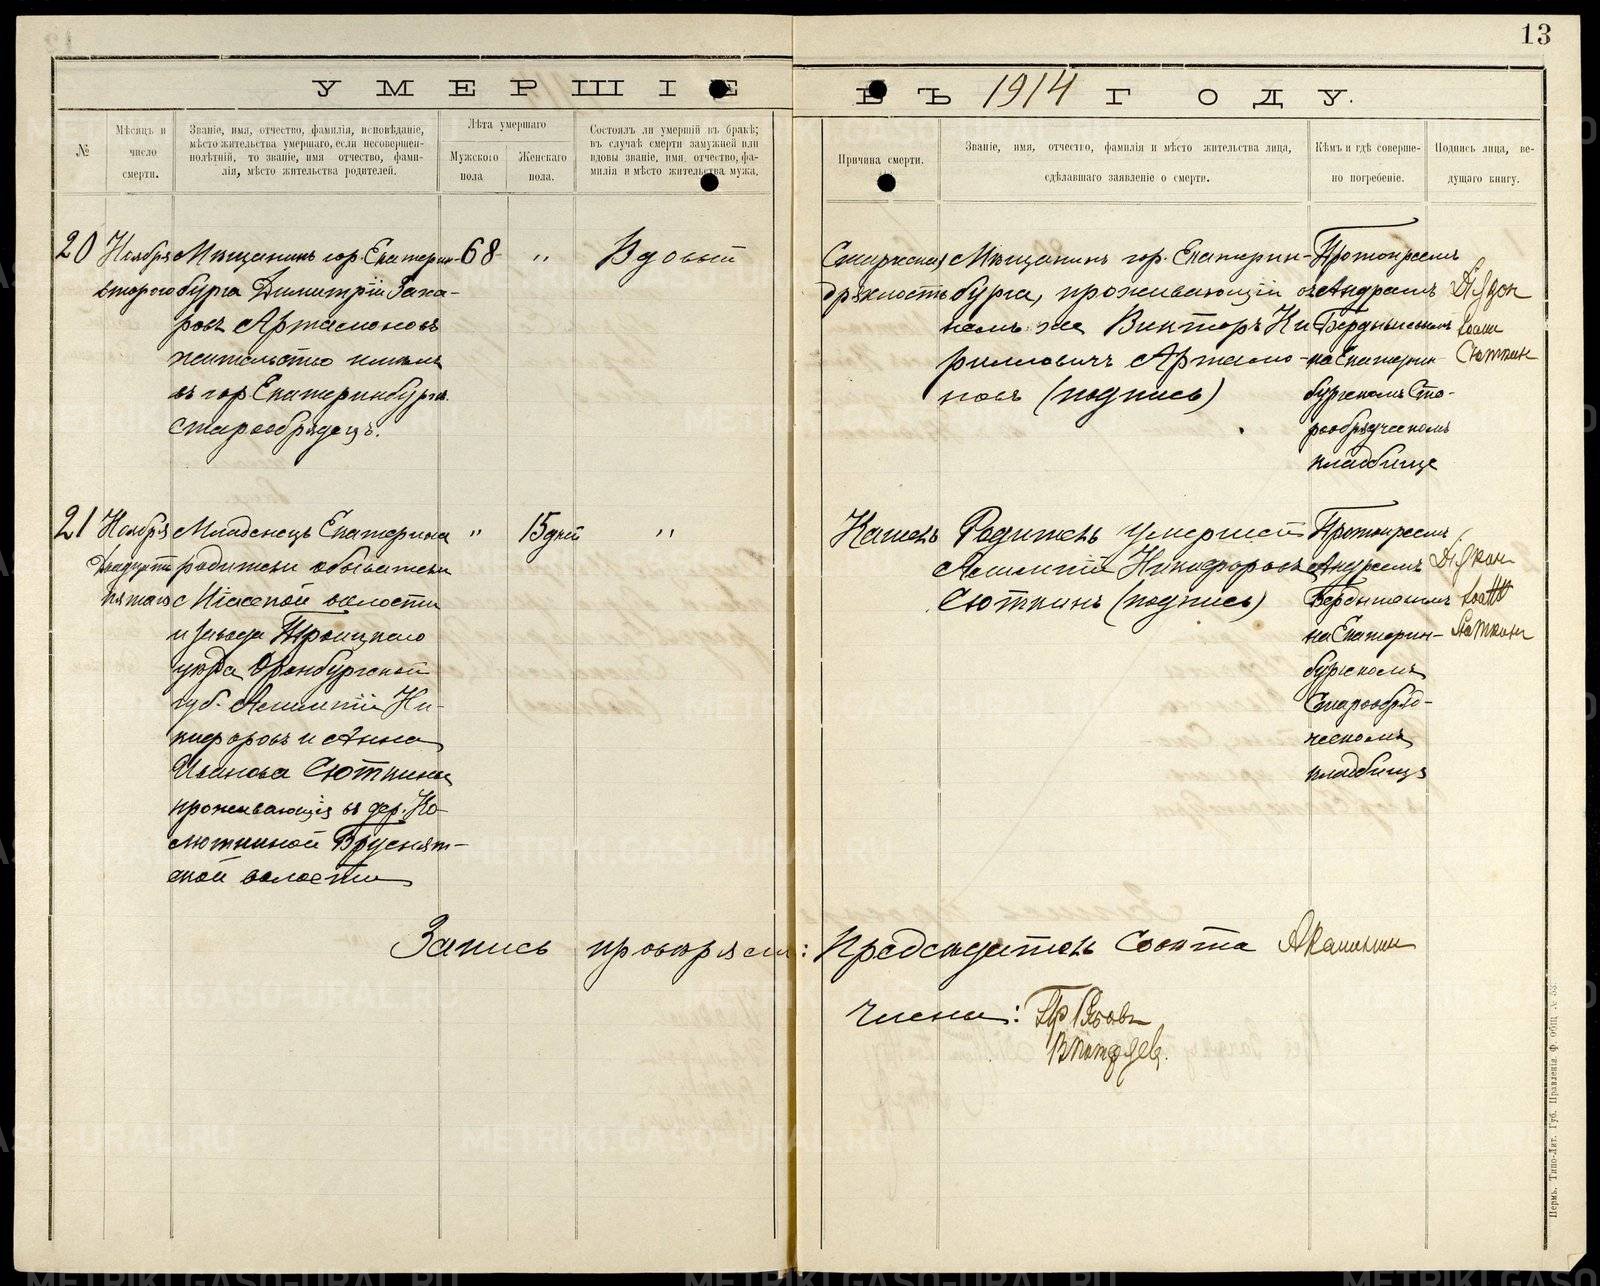 13
УМЕРШІЕ ВЪ 1914 ГОДУ.
№
Мѣсяцъ и
число
смерти.
Званіе, имя, отчество, фамилія, исповѣданіе,
мѣсто жительства умершаго, если несовершен-
нолѣтній, то званіе, имя отчество, фами-
лія, мѣсто жительства родителей.
Лѣта умершаго
Мужского
пола
Женскаго
пола.
Состоялъ ли умершій въ бракѣ;
въ случаѣ смерти замужней или
вдовы званіе, имя, отчество, фа-
милія и мѣсто жительства мужа.
Причина смерти.
Званіе, имя, отчество, фамилія и мѣсто жительства лица,
сдѣлавшаго заявленіе о смерти.
Кѣмъ и гдѣ соверше-
но погребеніе.
Подпись лица, ве-
дущаго книгу.
20
Ноября
второго
Мѣщанинъ гор. Екатерин-
бурга Димитрій Заха-
ровъ Артамоновъ
жительство имѣлъ
въ гор. Екатеринбургѣ.
Старообрядецъ.
68
"
Вдовый
Старческая
дряхлость
Мѣщанинъ гор. Екатерин-
бурга, проживающій въ
немъ же Викторъ Ки
рилловичъ Артамо-
новъ (подпись)
Протоіереемъ
Андреемъ
Бердышевымъ
на Екатерин-
бургскомъ Ста-
рообрядческомъ
кладбище
Дьякон
Сюткин
21
Ноября
двадцать
пятаго
Младенецъ Екатерина
родители обыватели
с Міасской волости
и завода Троицкаго
уѣзда Оренбургской
губ. Ни-
кифоровъ и Анна
Иванова Сюткины
проживающія въ дер. Ко-
люткиной Бруснят-
ской волости
"
15 дней
"
Кашель
Родитель умершей
Никифоровъ
Сюткинъ (подпись)
Протоіереемъ
Андреемъ
Бердышевымъ
на Екатерин-
бургскомъ
Старообряд-
ческомъ
кладбищѣ
Дьякон
Сюткин
Запись провѣряли: Предсѣдатель Совѣта
Члены:
Пермь. Типо-Лит. Губ. Правленія. Ф. общ. № 53.
METRIKI.GASO-URAL.RU